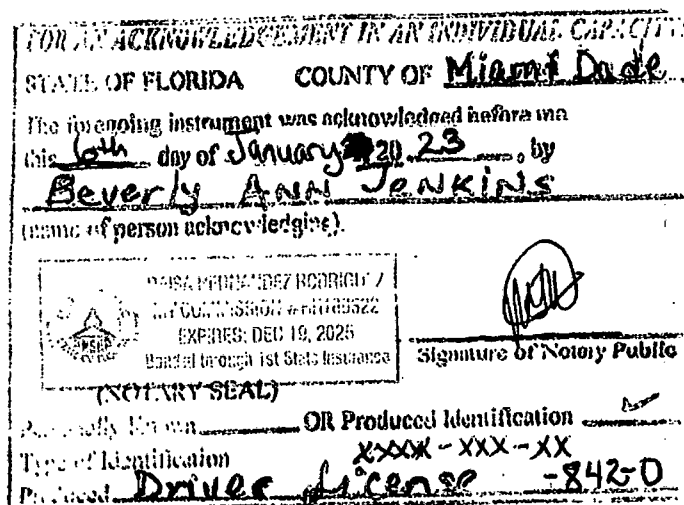 FOR AN ACKNOWLEDGEMENT IN AN INDIVIDUAL CAPACITY
STATE OF FLORIDA COUNTY OF Miami Dade
The foregoing instrument was acknowledged before me
this 6th day of January 20 23, by
Beverly Ann Jenkins
(name of person acknowledging).
HERNANDEZ RODRIGUEZ
MY COMMISSION #
EXPIRES: DEC 19, 2025
Bonded through 1st State Insurance
Signature of Notary Public
(NOTARY SEAL)
Personally Known OR Produced Identification
Type of Identification XXXX-XXX-XX
Produced Driver License -842-0